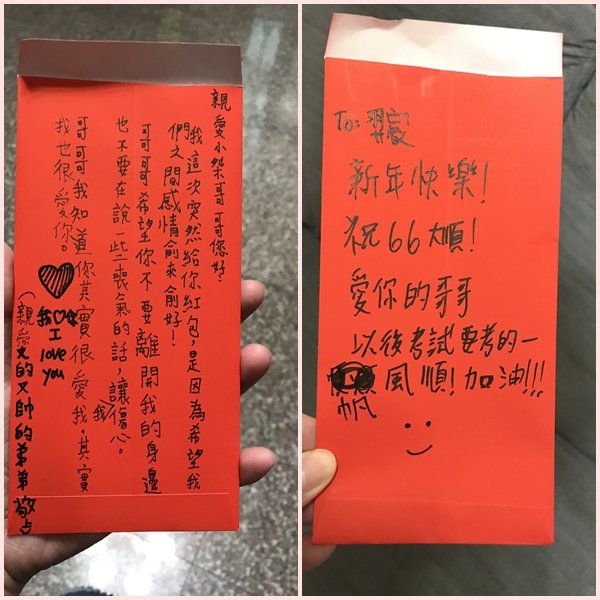 親愛小桀哥哥您好:
我這次突然給你紅包,是因為希望我
們之間感情俞來俞好!
哥哥希望你不要離開我的身邊
也不要在說一些喪氣的話,讓我傷心。
哥哥我知道你其實很愛我。其實
我也很愛你。
我♡你
I
love
you
(親愛的又帥的弟弟敬上
To: 羿
新年快樂!
祝66大順!
愛你的哥哥
以後考試要考的一
帆風順!加油!!!